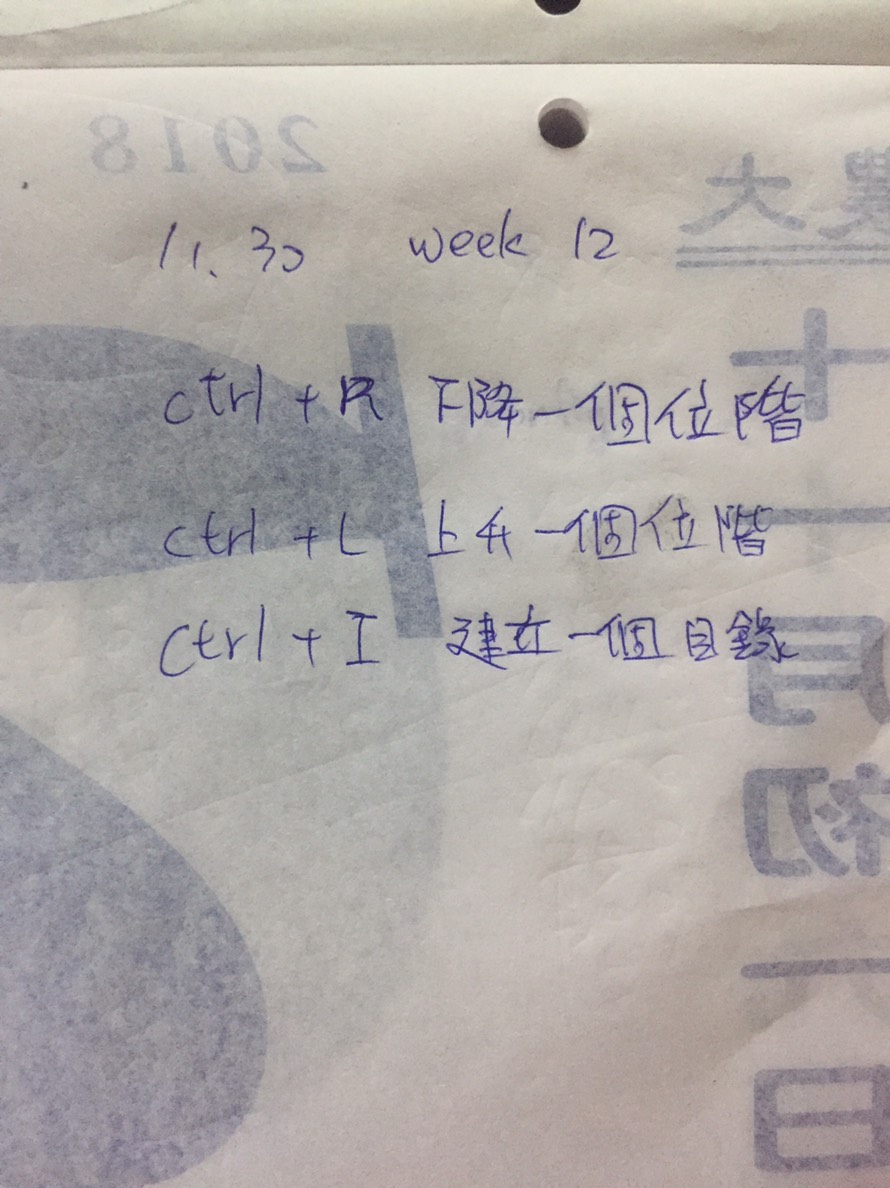 2018
11.30 week 12
ctrl + R 下降一個位階
ctrl + L 上升一個位階
ctrl + I 建立一個目錄
農大
十一月初一日